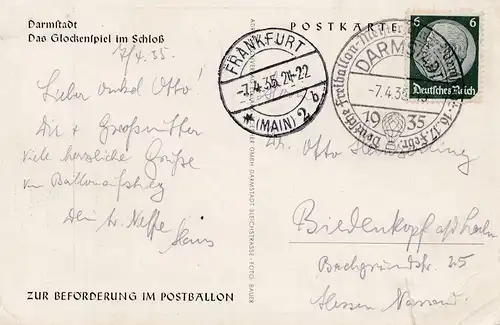 Darmstadt
Das Glockenspiel im Schloß
7/4.35.
Lieber Onkel Otto!
Dir & Großmutter
viele herzliche Grüße
vom Ballonaufstieg
Dein tr. Neffe
Hans
ZUR BEFÖRDERUNG IM POSTBALLON
FRANKFURT
-7.4.35.21-22
*(MAIN) 2 b
POSTKARTE
DARMSTADT
-7.4.35
1935
6 6
Deutsches Reich
Otto
Biedenkopf a/d Lahn
Bachgrundstr. 25
Hessen Nassau
GMBH DARMSTADT REICHSSTRASSE · FOTO: BAUER